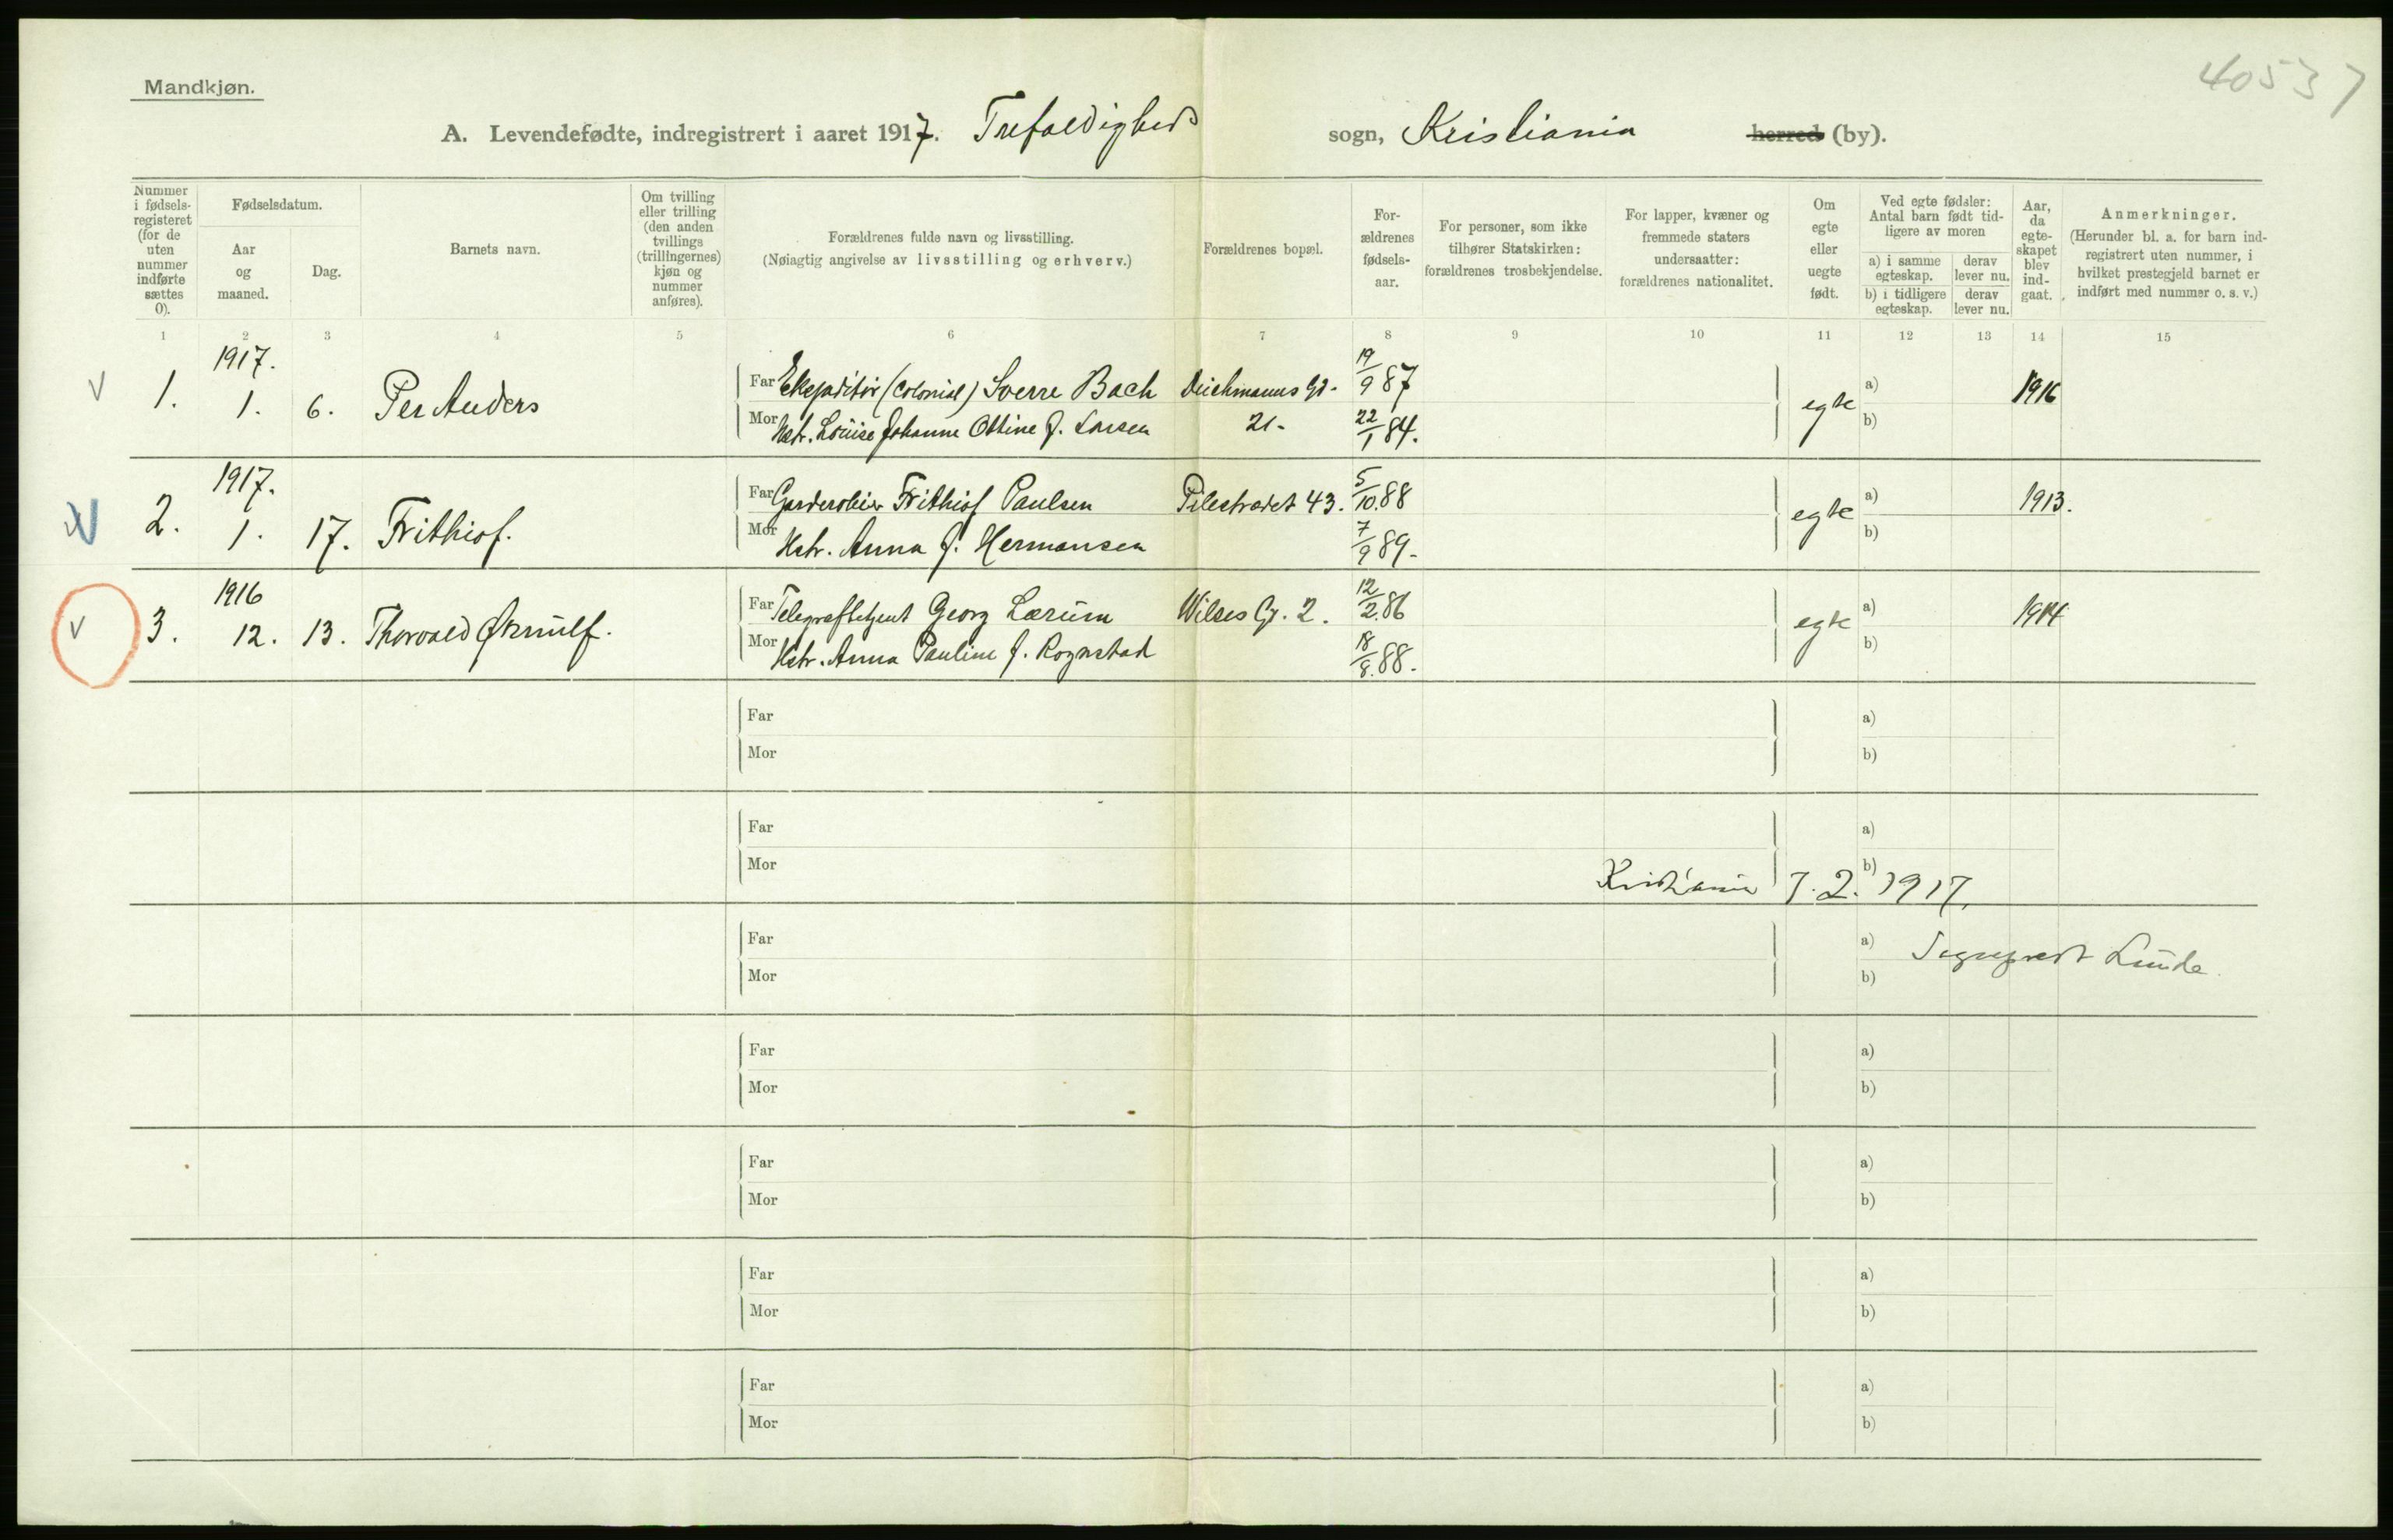 40537
Mandkjøn.
A. Levendefødte, indregistrert i aaret 1917. Trefoldigheds sogn, Kristiania herred (by).
Nummer i fødsels-registeret (for de uten nummer indførte sættes 0).
Fødselsdatum.
Aar og maaned.
Dag.
Barnets navn.
Om tvilling eller trilling (den anden tvillings (trillingernes) kjøn og nummer anføres).
Forældrenes fulde navn og livsstilling.
(Nøiagtig angivelse av livsstilling og erhverv.)
Forældrenes bopæl.
For-ældrenes fødsels-aar.
For personer, som ikke tilhører Statskirken: forældrenes trosbekjendelse.
For lapper, kvæner og fremmede staters undersaatter: forældrenes nationalitet.
Om egte eller uegte født.
Ved egte fødsler: Antal barn født tid-ligere av moren
a) i samme egteskap.
derav lever nu.
b) i tidligere egteskap.
derav lever nu.
Aar, da egte-skapet blev ind-gaat.
Anmerkninger.
(Herunder bl. a. for barn ind-registrert uten nummer, i hvilket prestegjeld barnet er indført med nummer o. s. v.)
1 2 3 4 5 6 7 8 9 10 11 12 13 14 15
v 1. 1917. 1. 6. Per Anders
Far Ekspeditør (Colonial) Sverre Bach Deichmanns Gd. 19/9 87 egte a) 1916
Mor Hstr. Louise Johanne Othine f. Larsen 21- 22/1 84. b)
V 2. 1917. 1. 17. Frithiof.
Far Garderobier Frithiof Paulsen Pilestrædet 43. 5/10.88 egte a) 1913.
Mor Hstr. Anna f. Hermansen 7/9 89- b)
v 3. 1916 12. 13. Thorvald Ørnulf.
Far Georg Lærum Wilses G. 2. 12/2.86 egte a) 1914
Mor Hstr. Anna Pauline f. Rognstad 18/8.88. b)
Far a)
Mor b)
Far a)
Mor b)
Kristiania 7.2.1917.
Far a) Sogneprest Lunde.
Mor b)
Far a)
Mor b)
Far a)
Mor b)
Far a)
Mor b)
Far a)
Mor b)